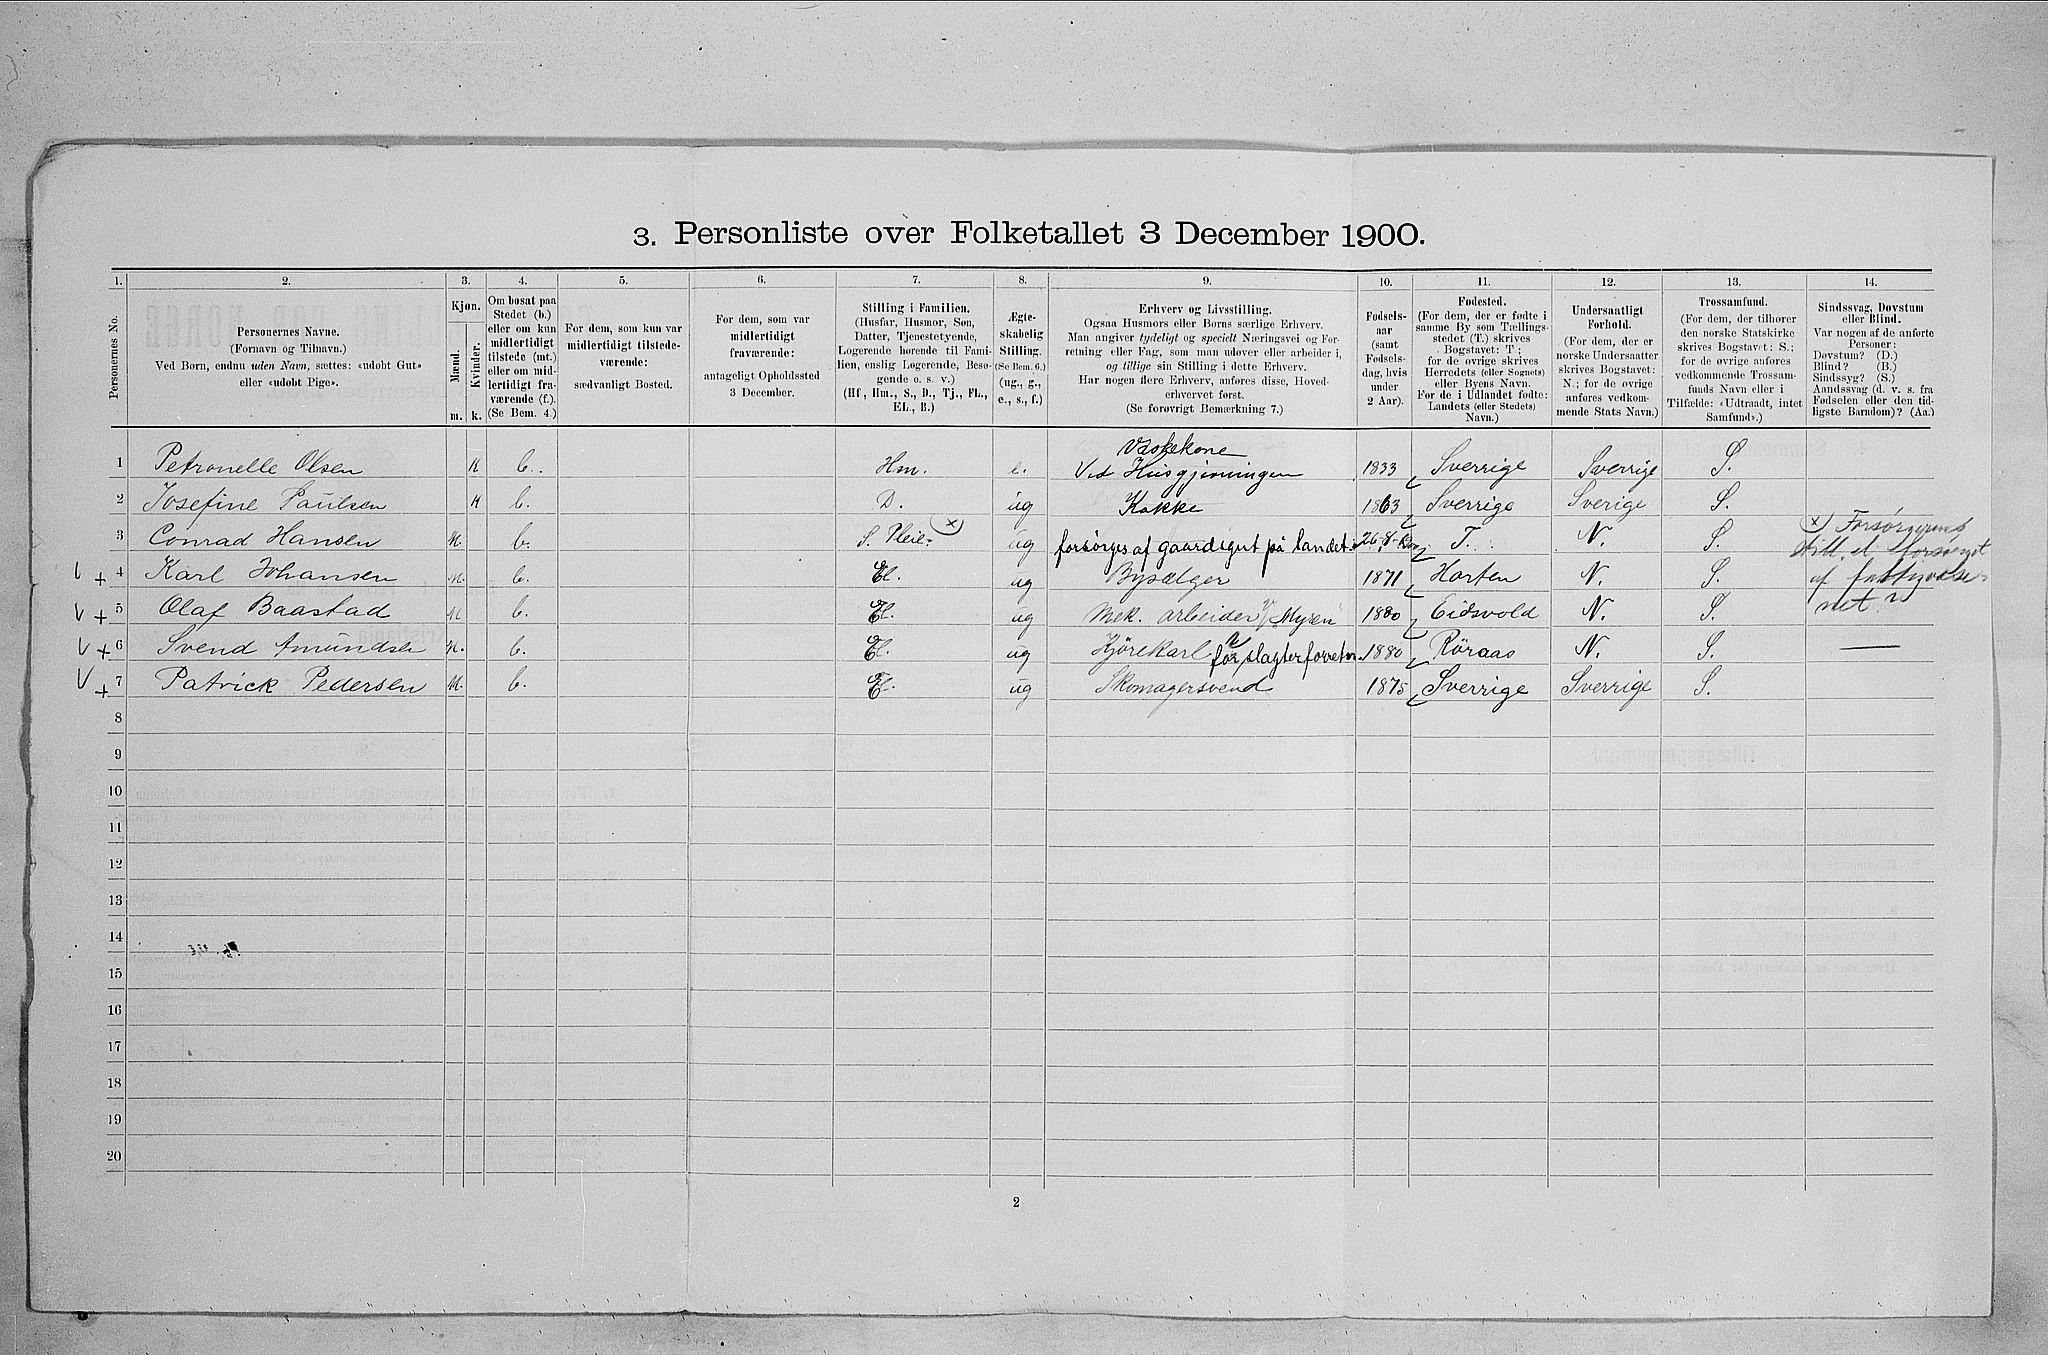 3. Personliste over Folketallet 3 December 1900.
1. 2. 3. 4. 5. 6. 7. 8. 9. 10. 11. 12. 13. 14.
Personernes No.
Personernes Navne.
(Fornavn og Tilnavn.)
Ved Børn, endnu uden Navn, sættes: «udøbt Gut»
eller «udøbt Pige».
Kjøn.
Mænd.
Kvinder.
m. k.
Om bosat paa
Stedet (b.)
eller om kun
midlertidigt
tilstede (mt.)
eller om mid-
lertidigt fra-
værende (f.).
(Se Bem. 4.)
For dem, som kun var
midlertidigt tilstede-
værende:
sædvanligt Bosted.
For dem, som var
midlertidigt
fraværende:
antageligt Opholdssted
3 December.
Stilling i Familien.
(Husfar, Husmor, Søn,
Datter, Tjenestetyende,
Logerende hørende til Fami-
lien, enslig Logerende, Besø-
gende o. s. v.)
(Hf., Hm., S., D., Tj., FL.,
EL., B.)
Ægte-
skabelig
Stilling.
(Se Bem. 6.)
(ug., g.,
e., s., f.)
Erhverv og Livsstilling.
Ogsaa Husmors eller Børns særlige Erhverv.
Man angiver tydeligt og specielt Næringsvei og For-
retning eller Fag, som man udøver eller arbeider i,
og tillige sin Stilling i dette Erhverv.
Har nogen flere Erhverv, anføres disse, Hoved-
erhvervet først.
(Se forøvrigt Bemærkning 7.)
Fødsels-
aar
(samt
Fødsels-
dag, hvis
under
2 Aar).
Fødested.
(For dem, der er fødte i
samme By som Tællings-
stedet (T.) skrives
Bogstavet: T;
for de øvrige skrives
Herredets (eller Sognets)
eller Byens Navn.
For de i Udlandet fødte:
Landets (eller Stedets)
Navn.)
Undersaatligt
Forhold.
(For dem, der er
norske Undersaatter
skrives Bogstavet:
N.; for de øvrige
anføres vedkom-
mende Stats Navn.)
Trossamfund.
(For dem, der tilhører
den norske Statskirke
skrives Bogstavet: S.;
for de øvrige anføres
vedkommende Trossam-
funds Navn eller i
Tilfælde: «Udtraadt, intet
Samfund».)
Sindssvag, Døvstum
eller Blind.
Var nogen af de anførte
Personer:
Døvstum? (D.)
Blind? (B.)
Sindssyg? (S.)
Aandssvag (d. v. s. fra
Fødselen eller den tid-
ligste Barndom)? (Aa.)
Vaskekone
1 Petronelle Olsen K b. Hm. e. Ved Husgjerningen 1833 Sverrige Sverrige S.
2 Josefine Paulsen K b. D. ug Kokke 1863 Sverrige Sverige S.
3 Conrad Hansen M. b. S. Pleie- (x) ug forsørges af gaardsgut på landet 26-8- T. N. S. (x) Forsørgerens
V + 4 Karl Johansen M. b. El. ug Bysælger 1871 Horten N. S. still. el. forsørget
af fattigvæse-
V + 5 Olaf Baastad M b. El. ug Mek. arbeider Myren 1880 Eidsvold N. S. net?
V + 6 Svend Amundsen M. b. El. ug Kjørekarl for slagterforretn. 1880 Röraas N. S. —
V + 7 Patrick Pedersen M. b. El. ug Skomagersvend 1875 Sverrige Sverrige S.
8
9
10
11
12
13
14
15
16
17
18
19
20
2